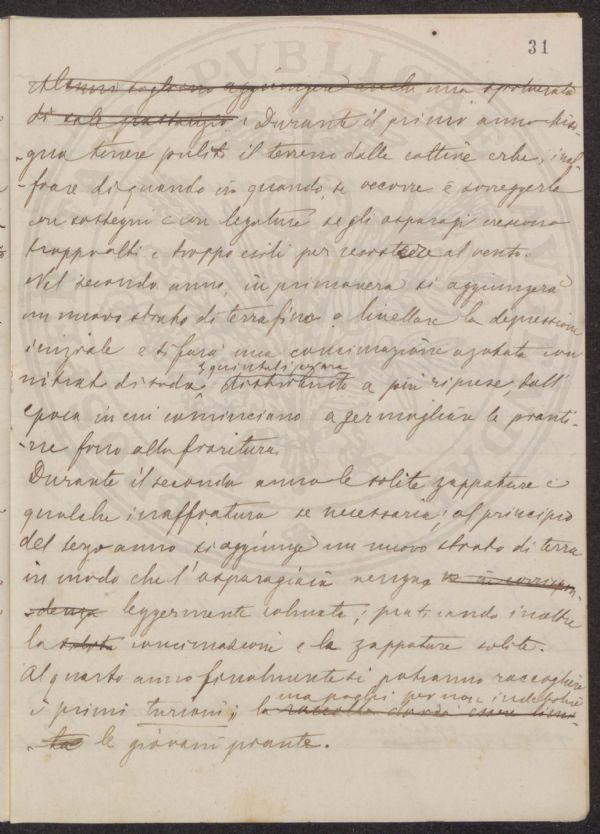 31
Alcuni sogliono aggiungere anche una spolverata
di sale pastorizio. Durante il primo anno biso-
gna tenere pulito il terreno dalle cattive erbe, inaf-
-fiare di quando in quando, se occorre e sorreggerle
con sostegni e con legature se gli asparagi crescono
troppo alti e troppo esili per resistere al vento.
Nel secondo anno, in primavera si aggiungerà
un nuovo strato di terra fino a livellare la depressione
iniziale e si farà una concimazione azotata con
3 quintali per ara
nitrato di soda distribuito a più riprese, dall'
epoca in cui cominciano a germogliare le pianti-
-ne fino alla fioritura.
Durante il secondo anno le solite zappature e
qualche inaffiatura se necessaria; al principio
del terzo anno si aggiunge un nuovo strato di terra
in modo che l'asparagiaia venga in corrispon-
-denza leggermente colmata; praticando inoltre
la solita concimazioni e la zappature solite.
Al quarto anno finalmente si potranno raccogliere
ma pochi per non indebolire
i primi turioni; la raccolta dovrà essere limi-
-ta le giovani piante.